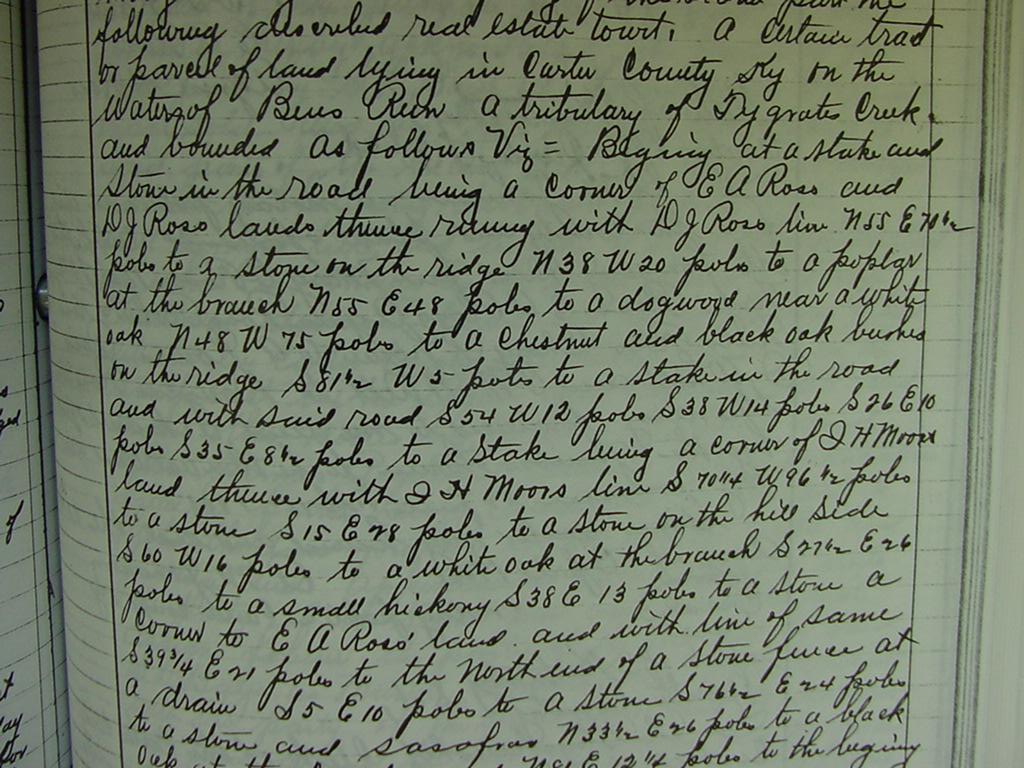 part the
following described real estate towit, A Certain tract
or parcel of land lying in Carter County Ky on the
waters of Bens Run A tributary of Tygrates Creek
and bounded as follows Viz = Begining at a stake and
stone in the road being a corner of E A Ross and
D J Ross lands thence runing with D J Ross line N55 E 70 1/2
poles to a stone on the ridge N38 W20 poles to a poplar
at the branch N55 E48 poles to a dogwood near a white
oak N48 W 75 poles to a Chestnut and black oak bushes
on the ridge S 81 1/2 W5 poles to a stake in the road
and with said road S54 W12 poles S38 W14 poles S26 E10
poles S35 E 8 1/2 poles to a Stake being a corner of J H Moors
land thence with J H Moors line S 70 1/4 W96 1/2 poles
to a stone S15 E28 poles to a stone on the hill side
S60 W16 poles to a white oak at the branch S27 1/2 E26
poles to a small hickory S38 E 13 poles to a stone a
Corner to E A Ross' land and with line of same
S39 3/4 E21 poles to the North end of a stone fence at
a drain S5 E10 poles to a stone S76 1/2 E24 poles
to a stone and sasafras N33 1/2 E26 poles to a black
oak at the E 12 1/4 poles to the begining